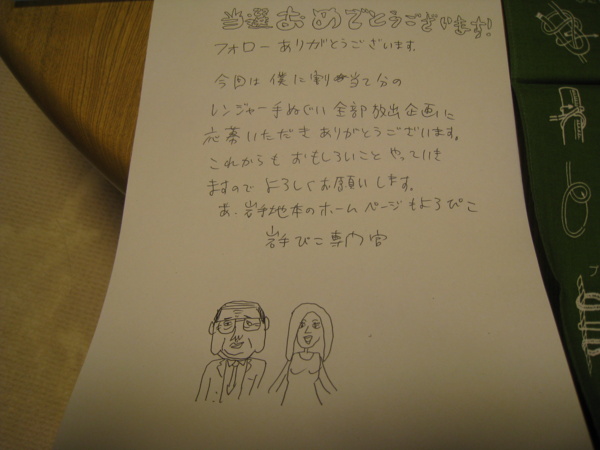 当選おめでとうございます!
フォローありがとうございます。
今回は僕に割り当て分の
レンジャー手ぬぐい全部放出企画に
応募いただきありがとうございます。
これからもおもしろいことやっていき
ますのでよろしくお願いします。
あ、岩手地本のホームページもよろぴこ
岩手ぴこ専門官